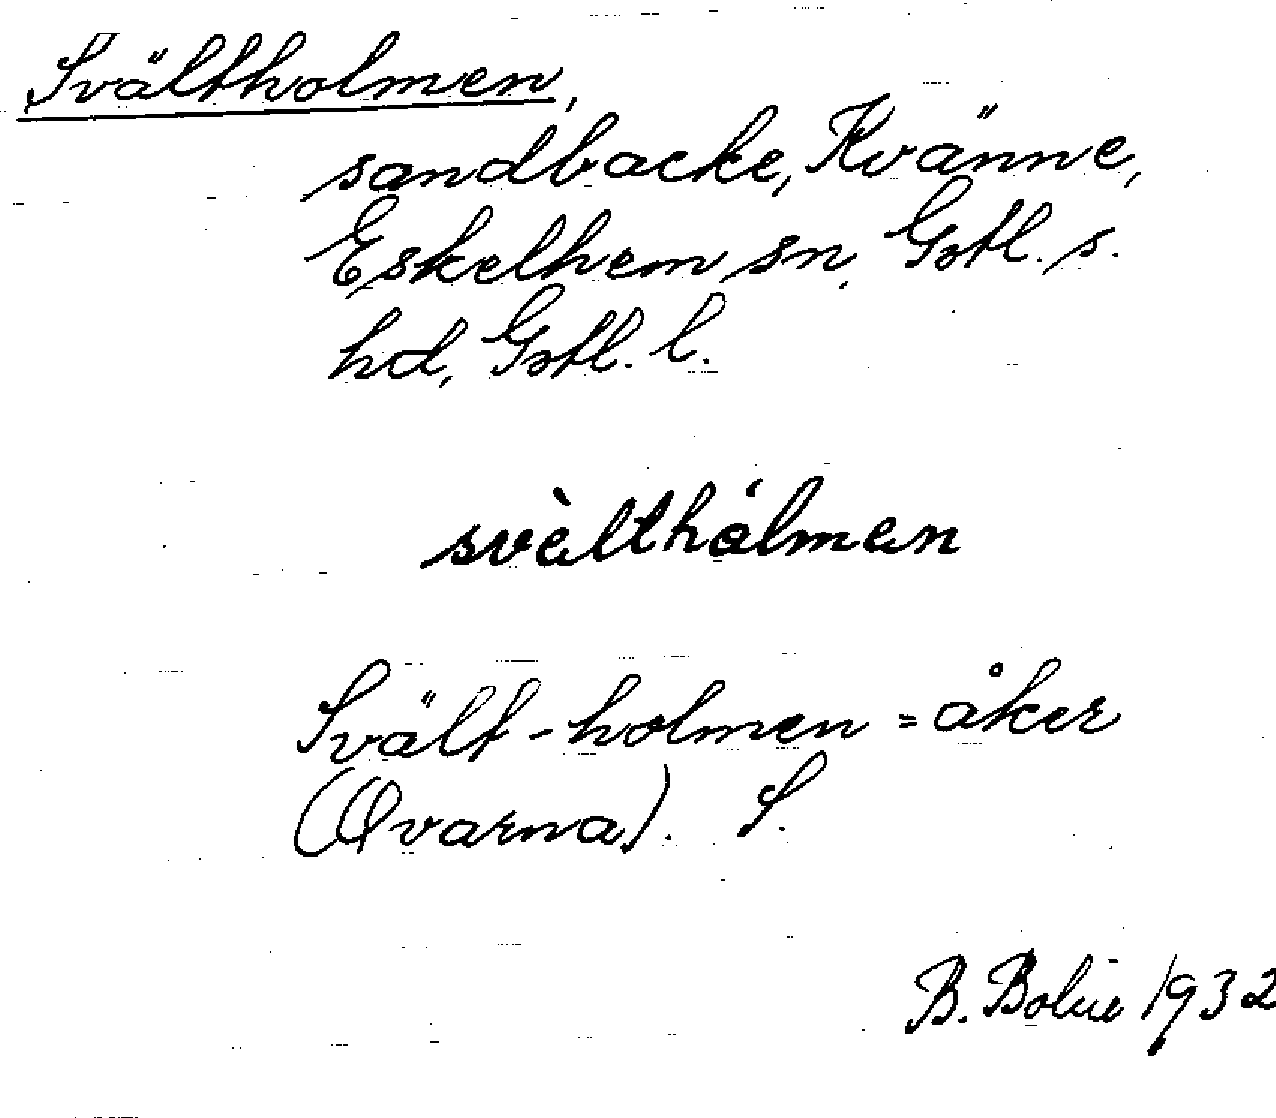 Svältholmen,
sandbacke, Kvänne,
Eskelhem sn, Gotl. s.
hd, Gotl. l.
svàlthålmen
Svält-holmen = åker
(Qvarna). S.
B. Bolin 1932